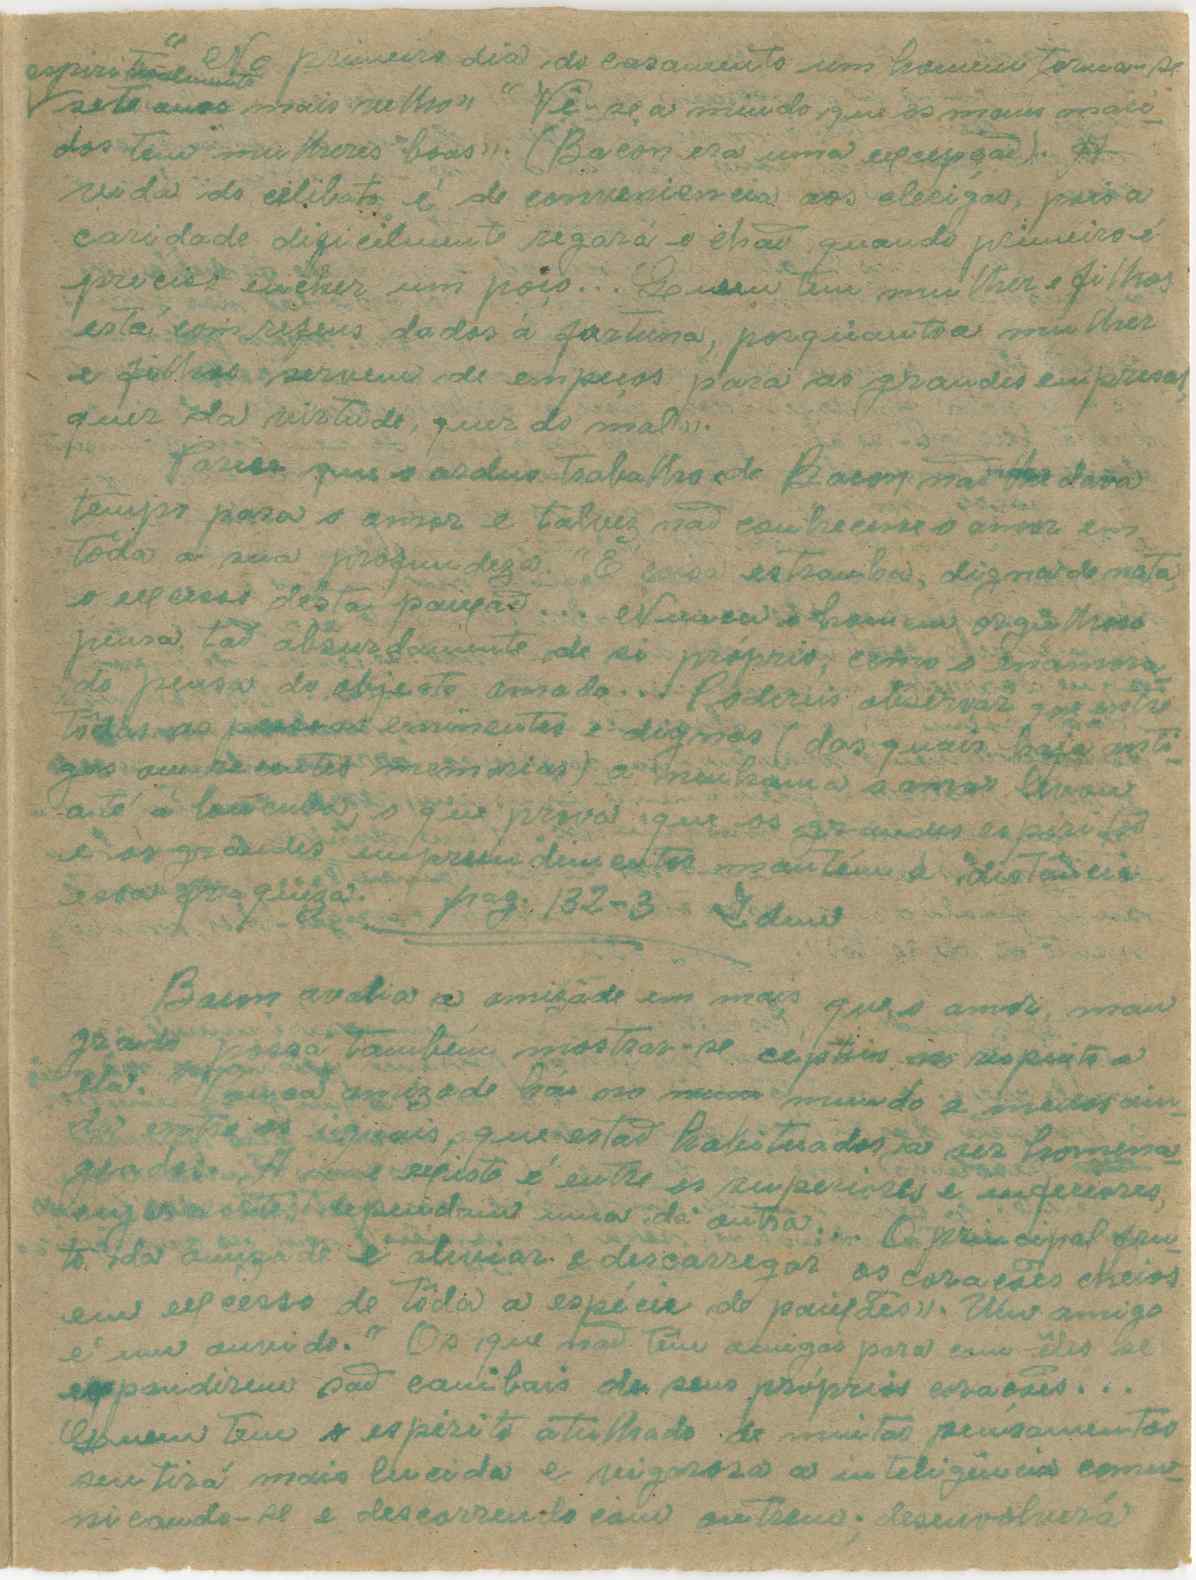 " No primeiro dia do casamento um homem torna-se
espiritualmente
sete anos mais velho" " Vê-se a miudo que os maus mari-
dos tem mulheres boas". (Bacon era uma excepção). " A
vida do celibato é de conveniencia aos clerigos, pois a
caridade dificilmente regará o chão, quando primeiro é
preciso encher um poço... Quem tem mulher e filhos
está com reféns dados á fortuna, porquanto a mulher
e filhos servem de empeços para as grandes empresas,
quer da virtude, quer do mal".
Parece que o arduo trabalho de Bacon não lhe dava
tempo para o amor e talvez não conhecesse o amor em
tôda a sua profundeza. "É coisa estranha, digna de nota,
o excesso desta paixão... Nunca o homem orgulhoso
pensa tão absurdamente de si próprio, como o enamora-
do pensa do objecto amado... Podereis observar que entre
tôdas as pessoas eminentes e dignas (das quais haja anti-
gas ou recentes memórias) a nenhuma o amor levou
até á loucura, o que prova que os grandes espíritos
e os grandes empreendimentos mantém á distancia
essa fraqueza. pag. 132-3 Idem
Bacon avalia a amizade em mais que o amor, mau
grado possa também mostrar-se céptico no respeito a
ela. "Pouca amizade há no mundo e menos ain-
da entre os iguais, que estão habituados a ser homena-
geados. A que existe é entre os superiores e inferiores,
cuja sorte dependem uma da outra... O principal fru-
to da amizade é aliviar e descarregar os corações cheios
em excesso de tôda a espécie de paixões". Um amigo
é um ouvido. " Os que não têm amigos para com êles se
expandirem são canibais de seus próprios corações...
Quem tem o espírito atulhado de muitos pensamentos
sentirá mais lucida e vigorosa a inteligência comu-
nicando-se e descorrendo com outrem; desenvolverá